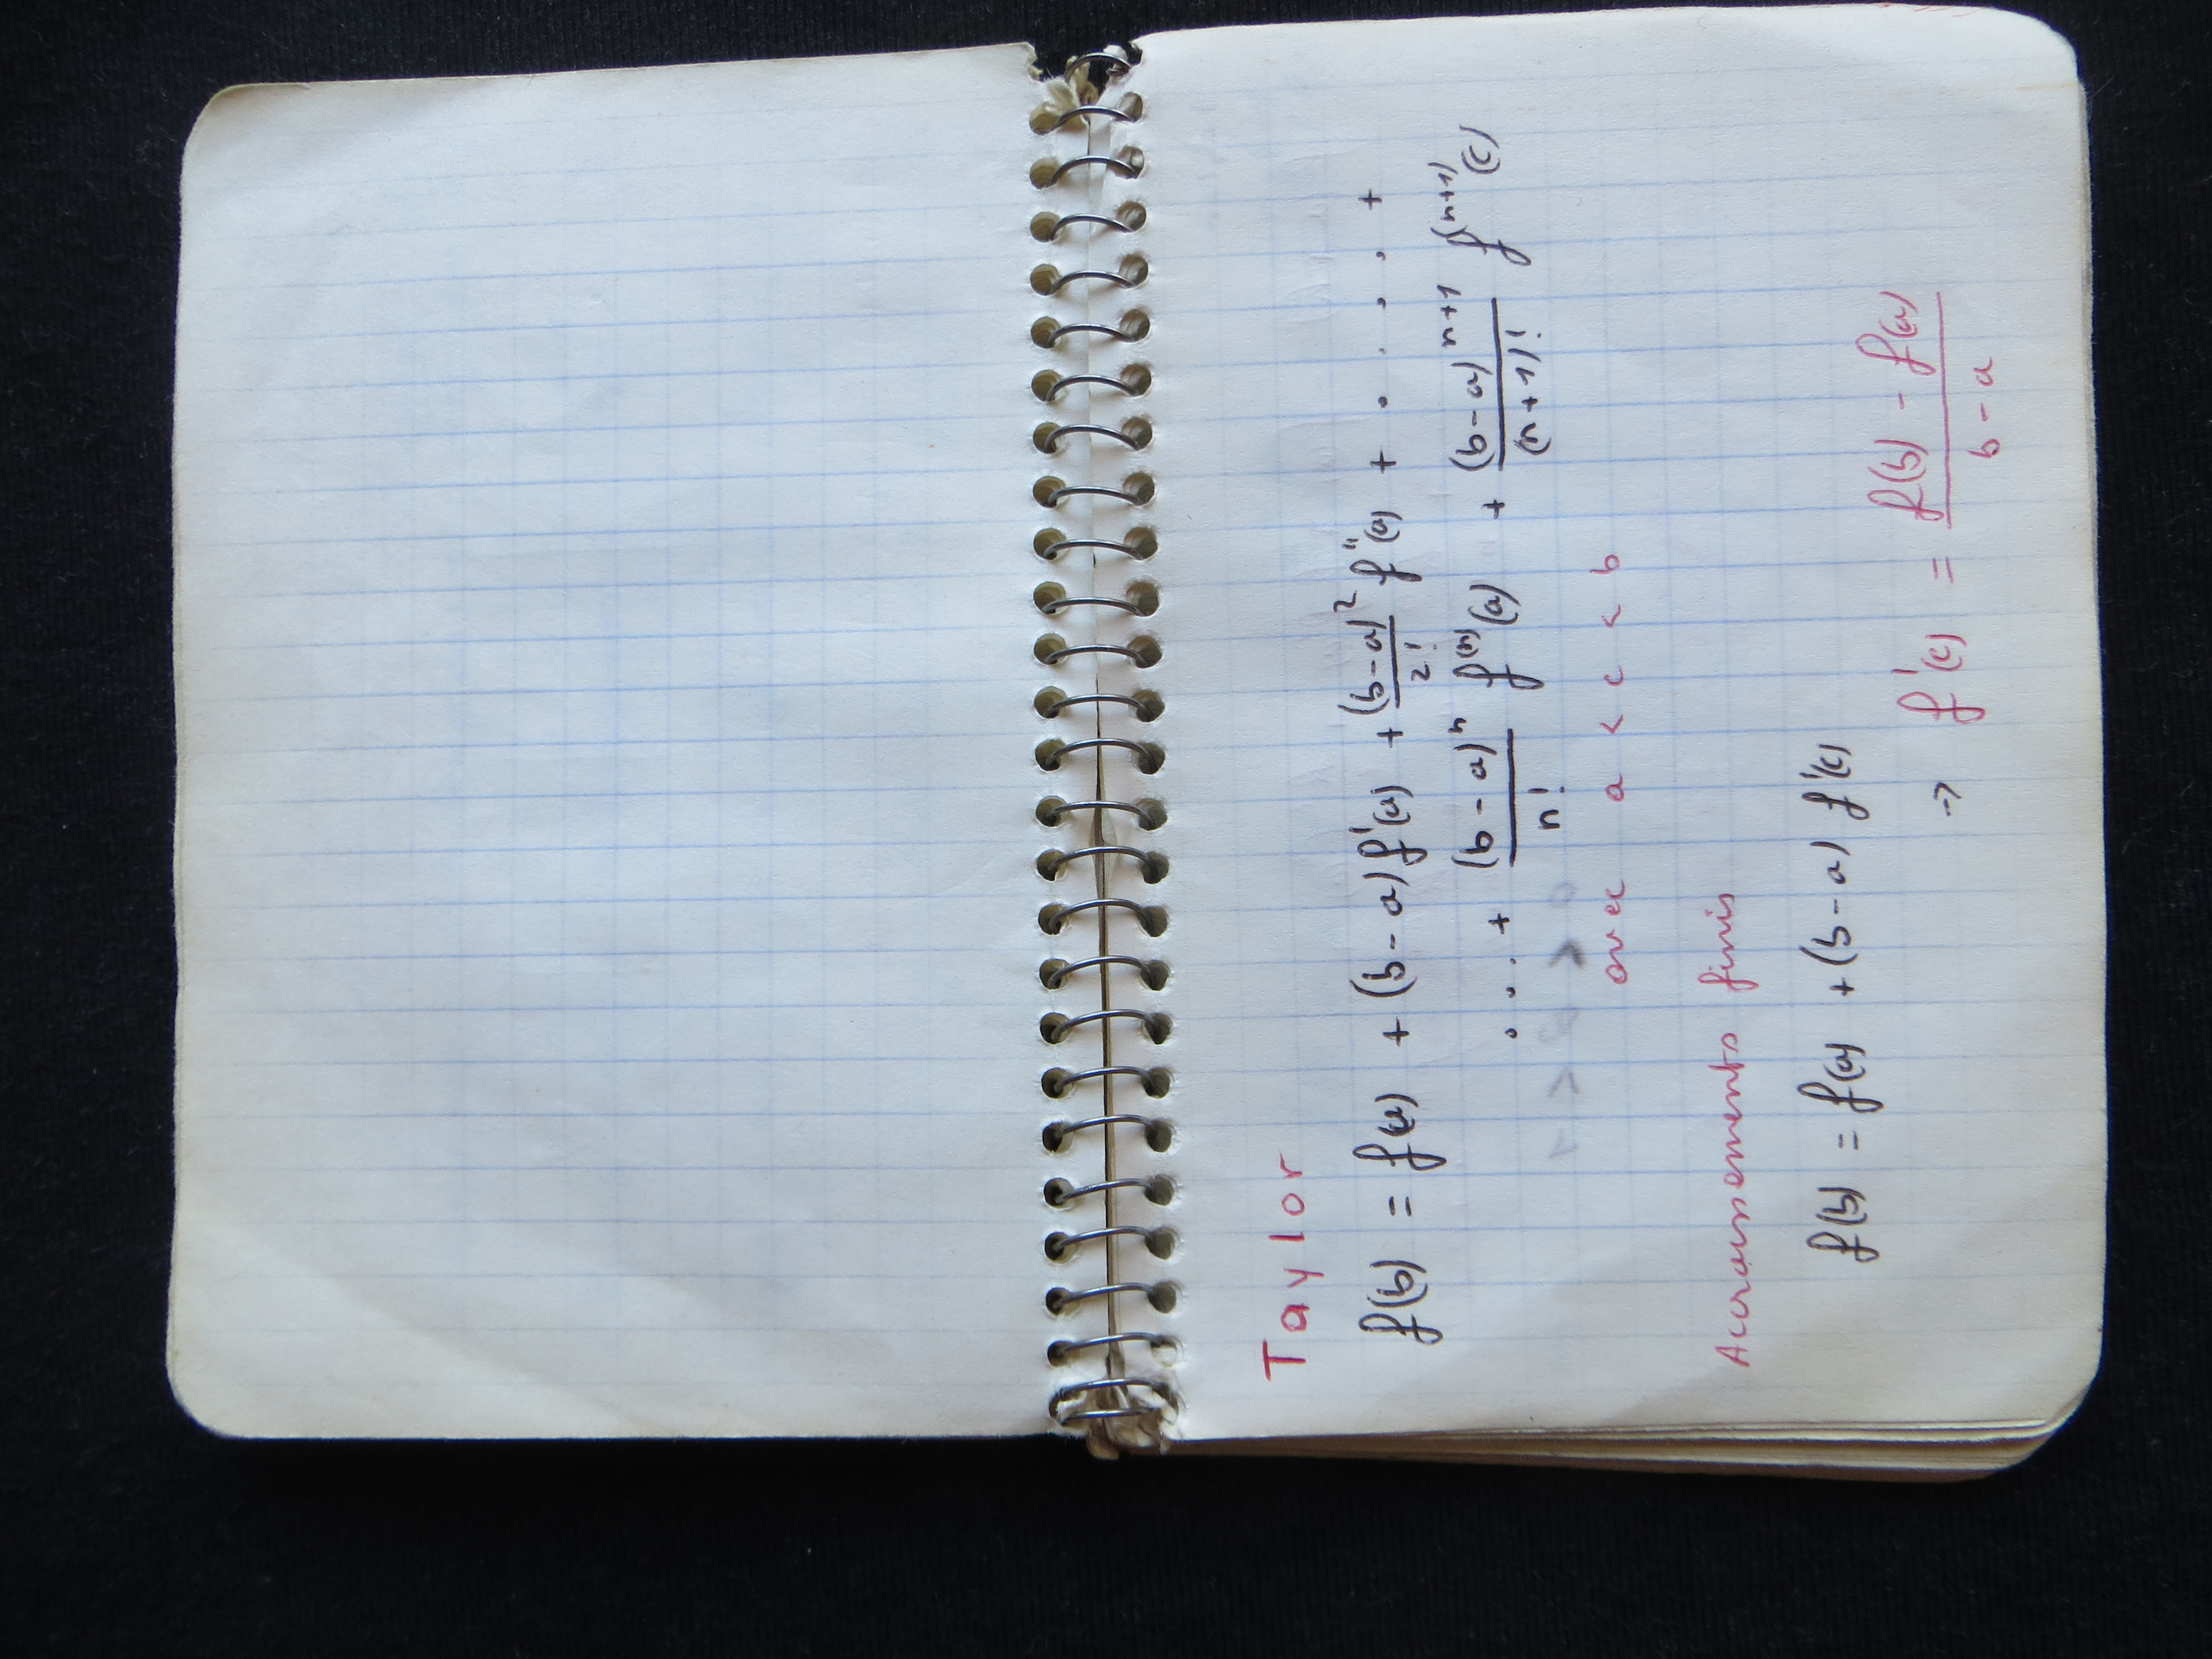 Taylor
f(b) = f(a) + (b-a) f'(a) + (b-a)²/2! f''(a) + . . . . +
. . . + (b-a)ⁿ/n! f⁽ⁿ⁾(a) + (b-a)ⁿ⁺¹/(n+1)! f⁽ⁿ⁺¹⁾(c)
avec a < c < b
Accroissements finis
f(b) = f(a) + (b-a) f'(c)
→ f'(c) = f(b) - f(a)/b-a